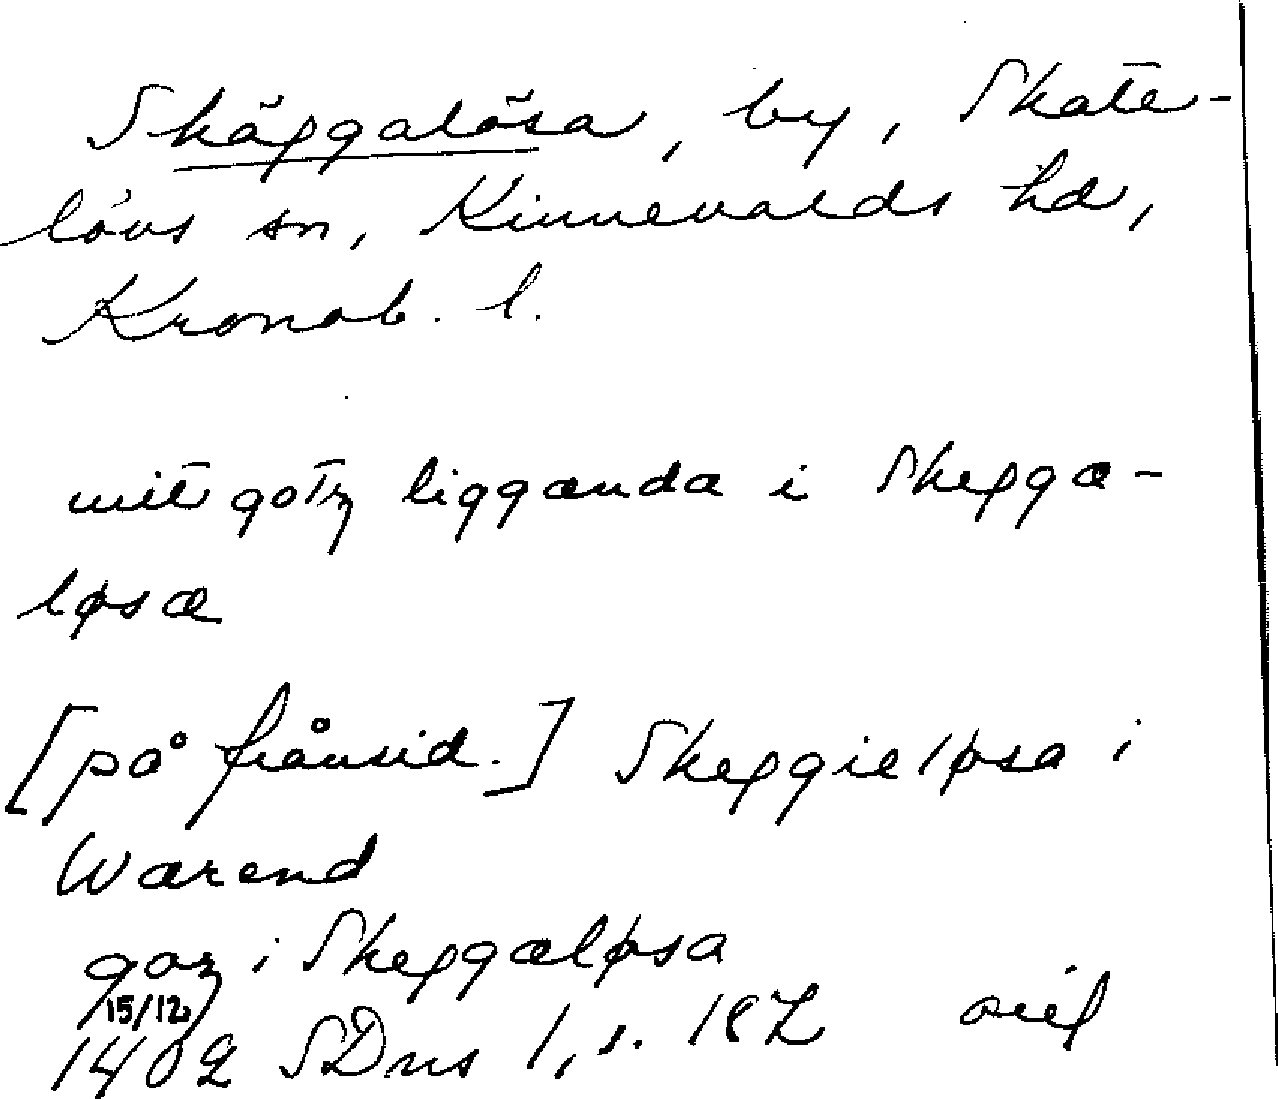 Skäggalösa, by, Skate-
lövs sn, Kinnevalds hd,
Kronob. l.
mit gotz liggænda i Skeggæ-
løsæ
[på frånsid.] Skeggieløsa i
Wærend
goz i Skeggæløsa
15/12
1402 SDns 1, s. 182 orig